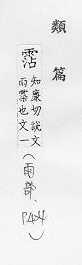 類篇
霑 知廉切說文
雨𩃱也文一
(雨部, P424)